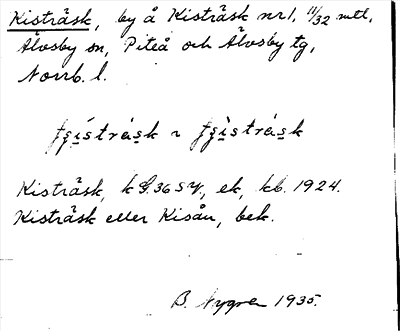 Kisträsk, by å Kisträsk nr 1, 11/32 mtl,
Älvsby sn, Piteå och Älvsby tg,
Norrb. l.
Kisträsk, ek, kb. 1924.
Kisträsk eller Kisån, bek.
B. Nygren 1935.